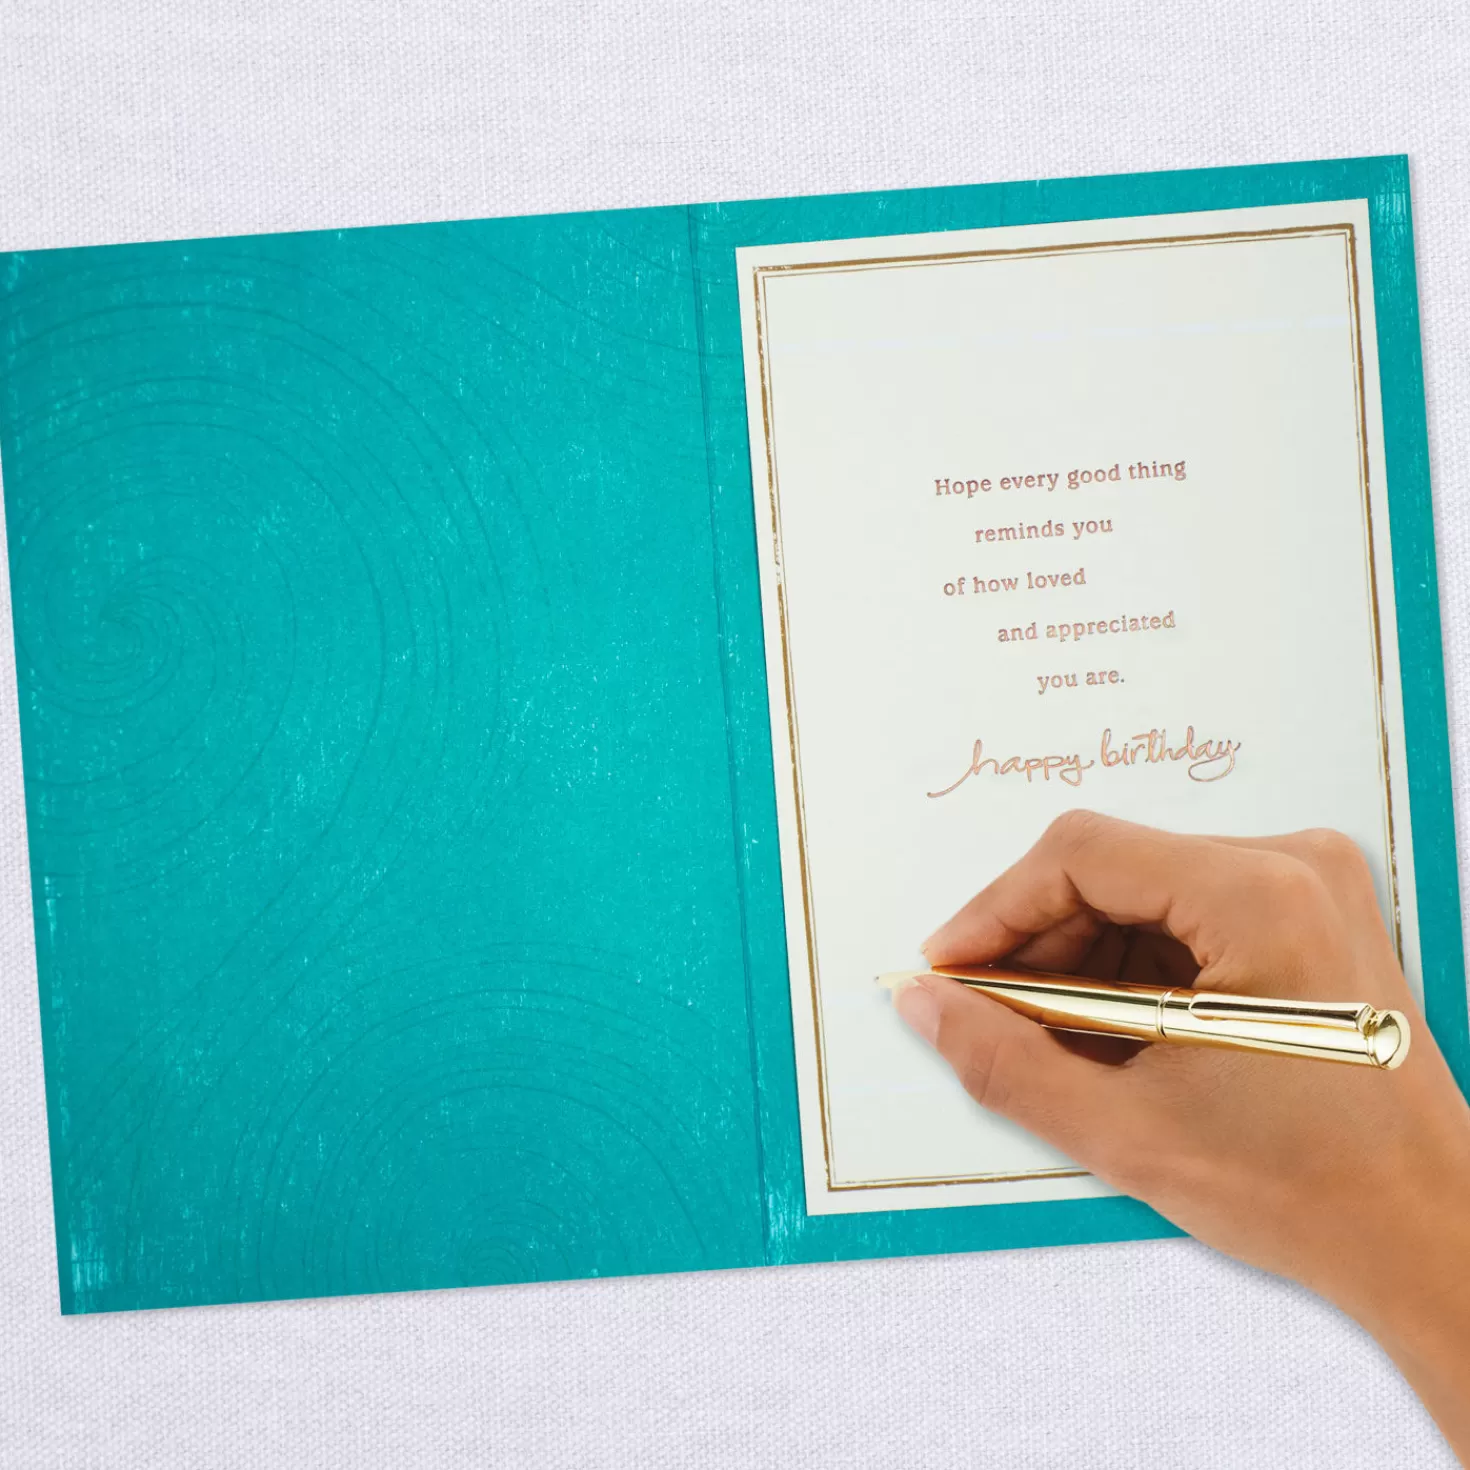 Hope every good thing
reminds you
of how loved
and appreciated
you are.
happy birthday